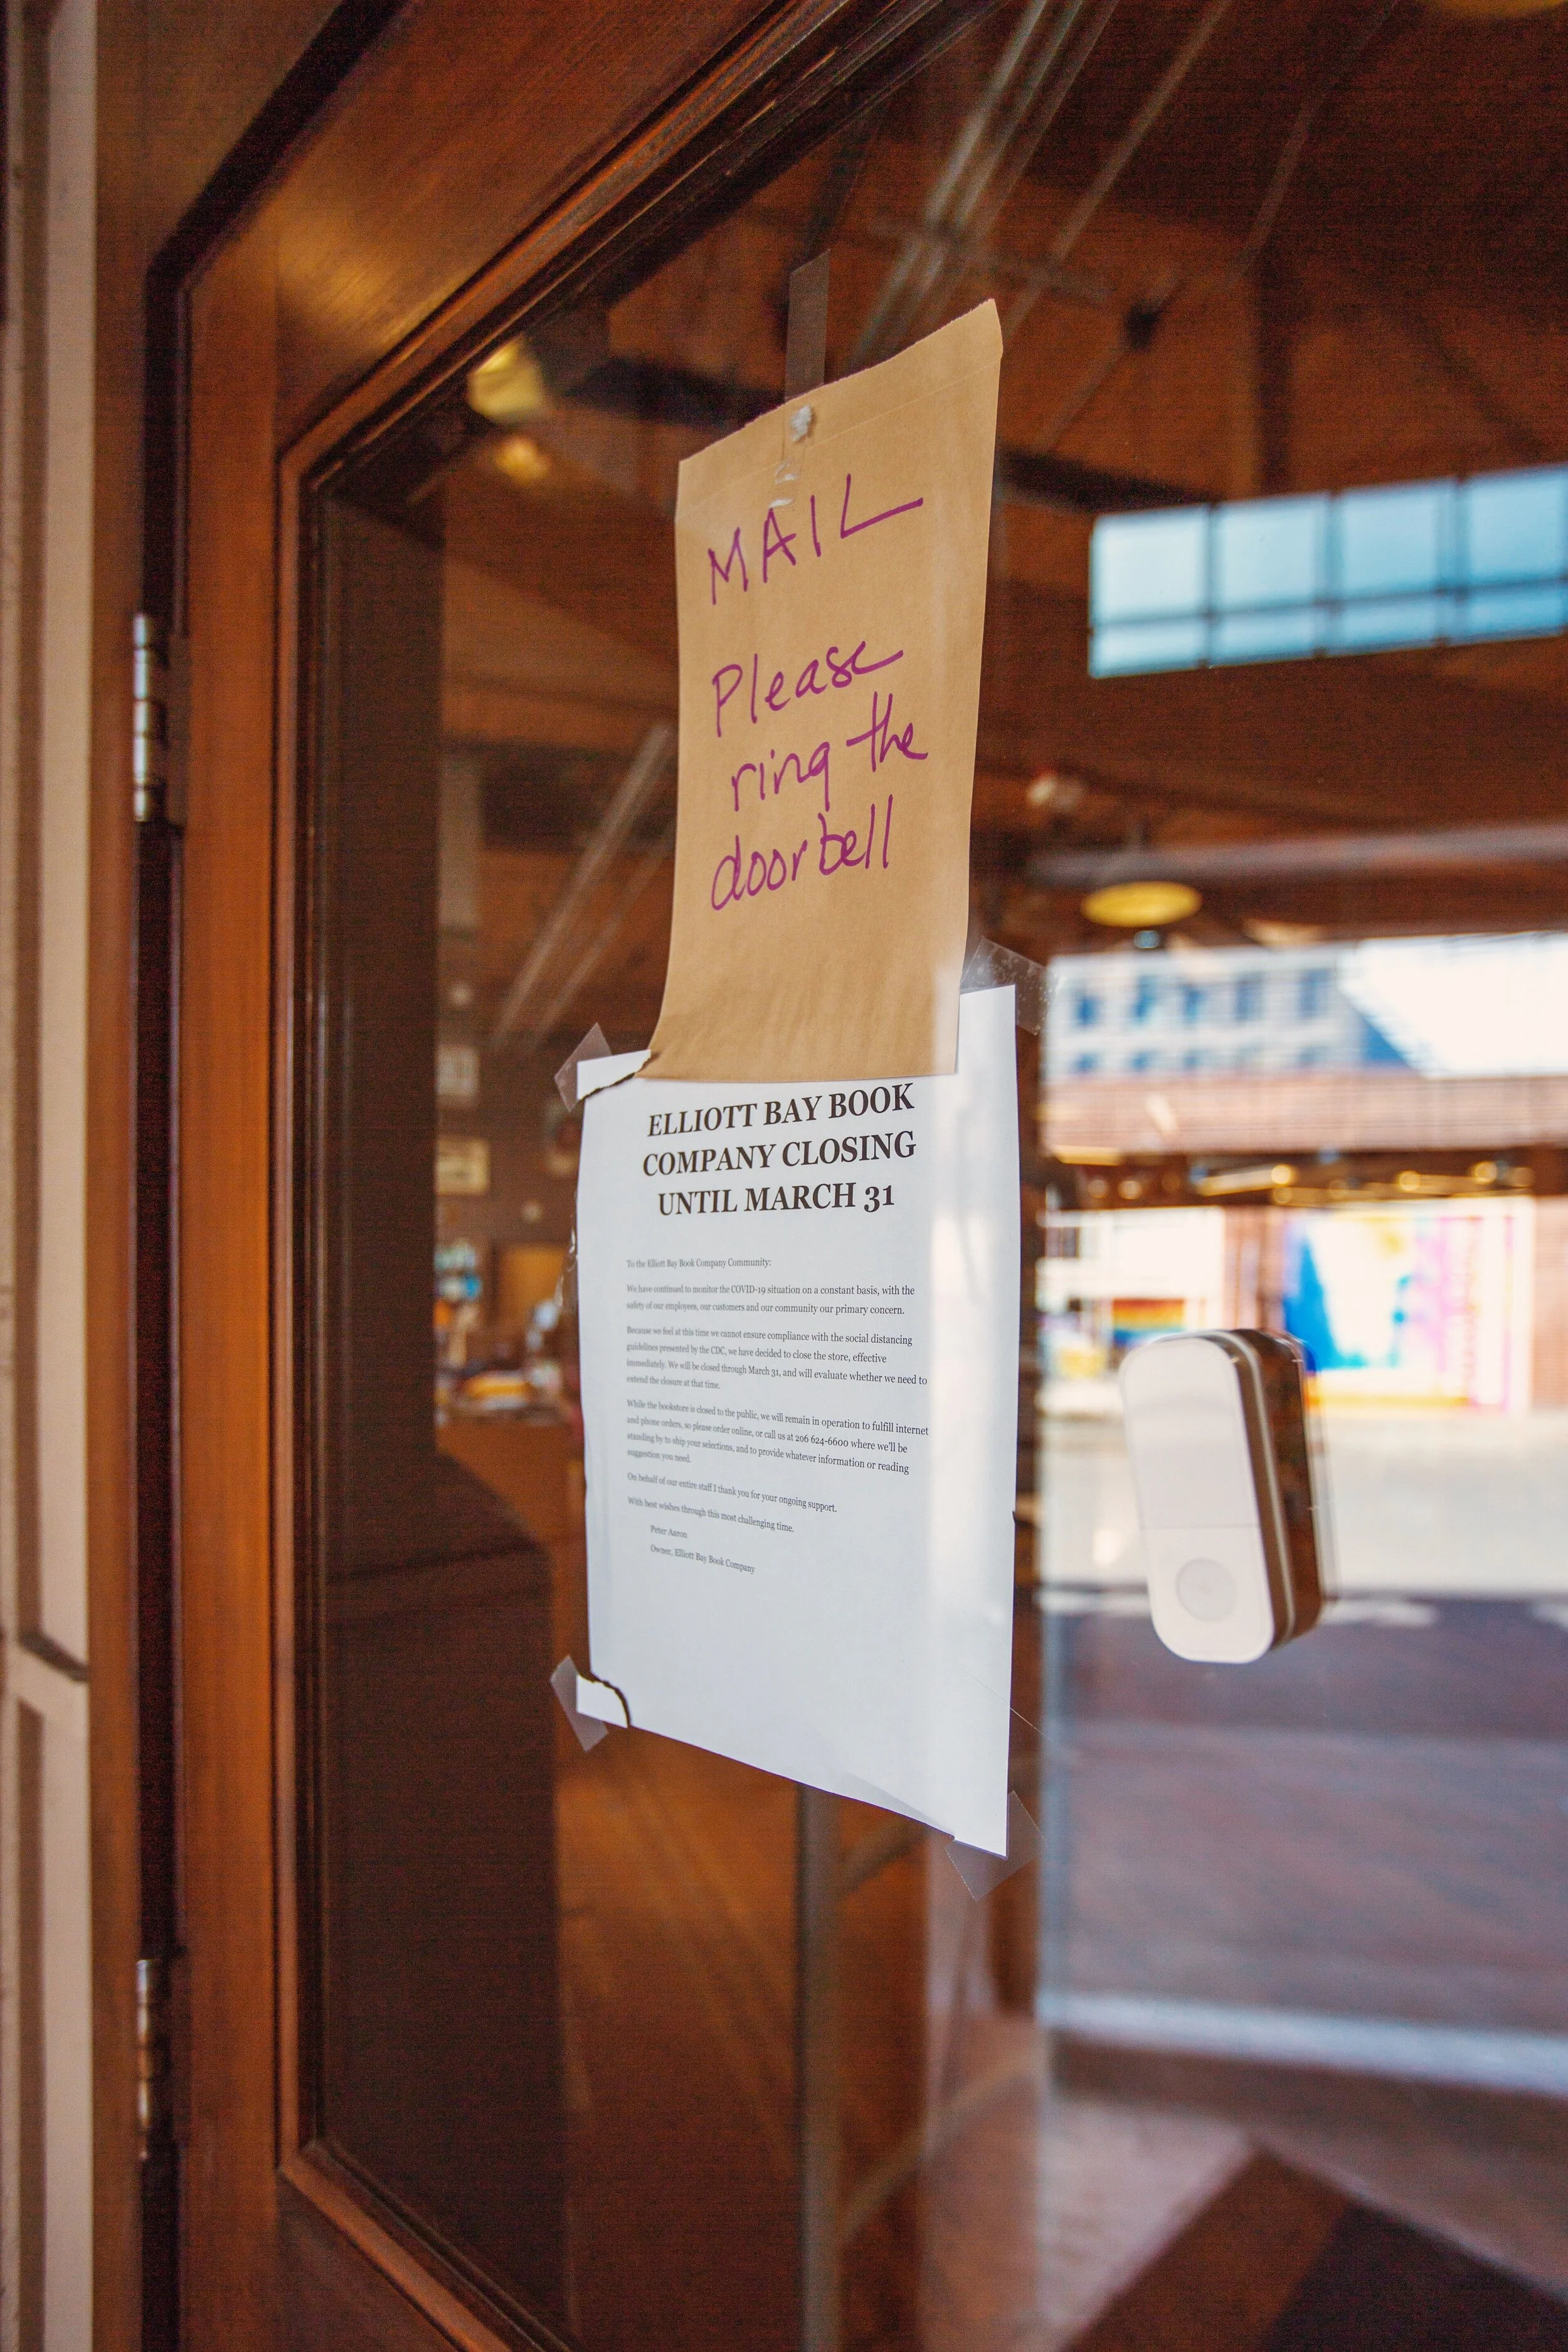 MAIL
Please
ring the
doorbell
ELLIOTT BAY BOOK
COMPANY CLOSING
UNTIL MARCH 31
To the Elliott Bay Book Company Community:
We have continued to monitor the COVID-19 situation on a constant basis, with the
safety of our employees, our customers and our community our primary concern.
Because we feel at this time we cannot ensure compliance with the social distancing
guidelines presented by the CDC, we have decided to close the store, effective
immediately. We will be closed through March 31, and will evaluate whether we need to
extend the closure at that time.
While the bookstore is closed to the public, we will remain in operation to fulfill internet
and phone orders, so please order online, or call us at 206 624-6600 where we'll be
standing by to ship your selections, and to provide whatever information or reading
suggestion you need.
On behalf of our entire staff I thank you for your ongoing support.
With best wishes through this most challenging time.
Peter Aaron
Owner, Elliott Bay Book Company